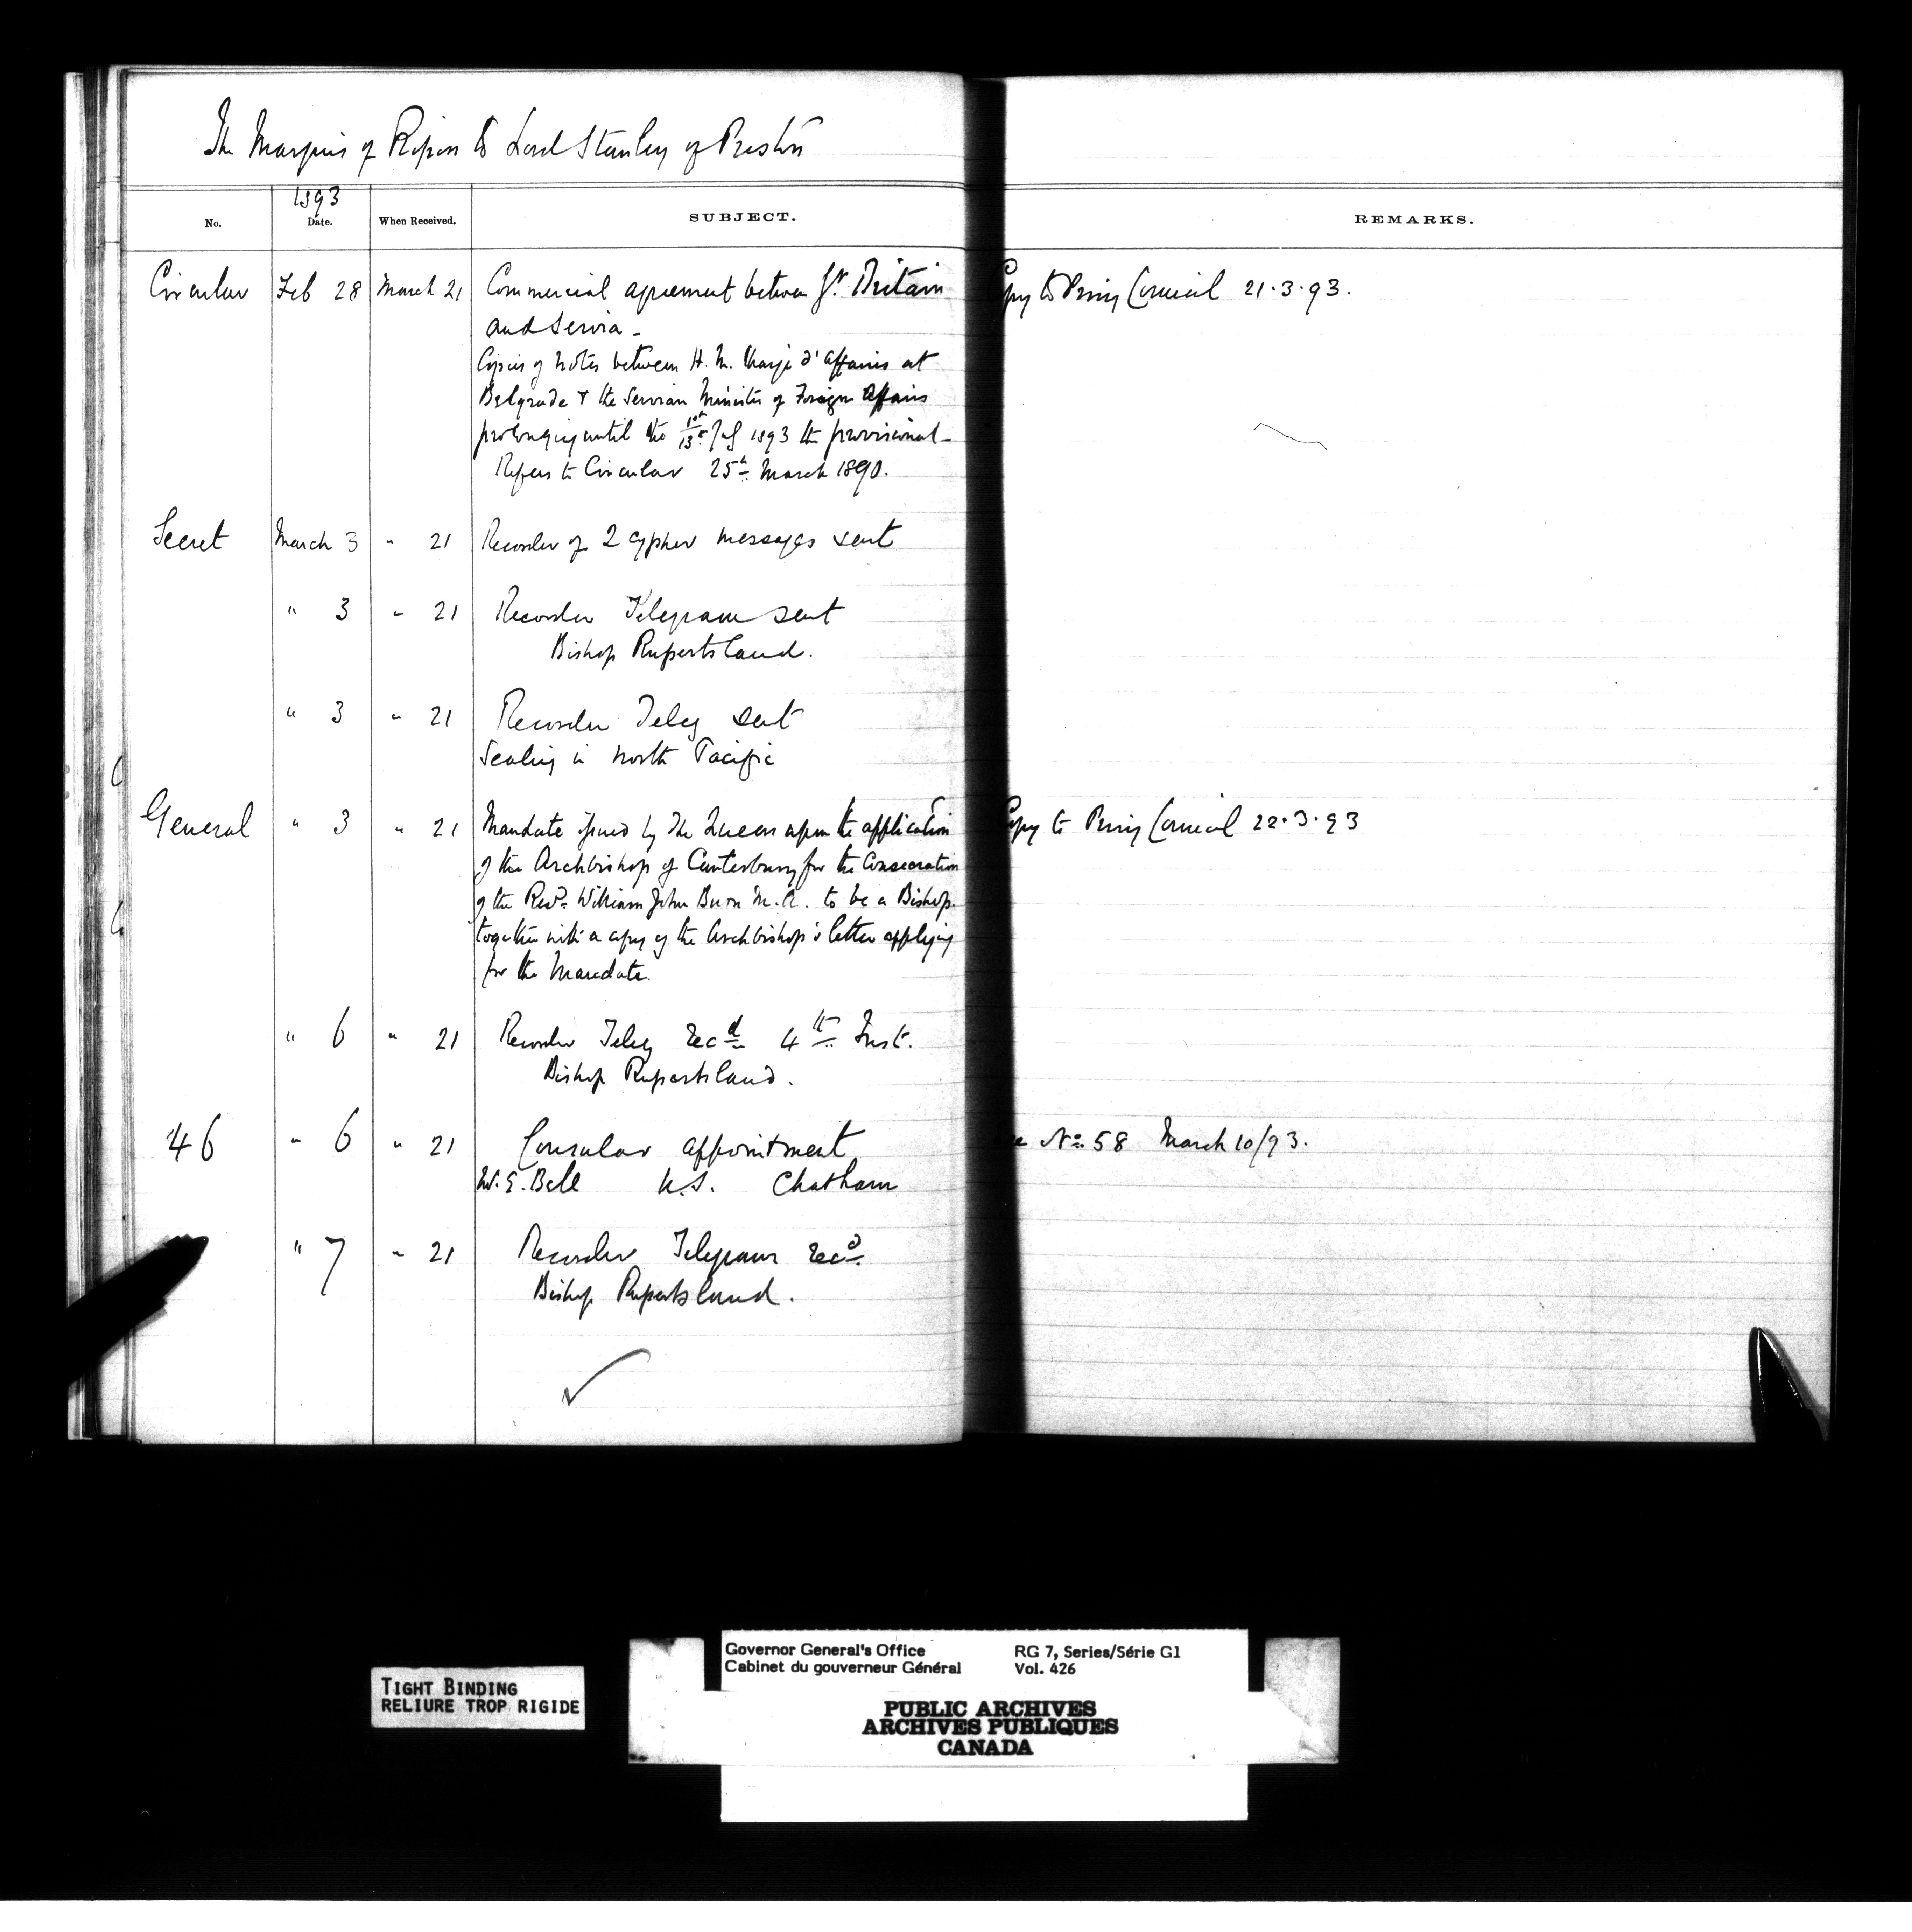 The Marquis of Ripon to Lord Stanley of Preston
1893
No. Date. When Received. SUBJECT. REMARKS.
Circular Feb 28 March 21 Commercial agreement between Gt. Britain Copy to Privy Council 21.3.93.
and Servia -
Copies of Notes between H. M. Chargé d'Affaires at
Belgrade & the Servian Minister of Foreign Affairs
prolonging until the 1st/13th July 1893 the provisional -
Refers to Circular 25th March 1890.
Secret March 3 " 21 Recorder of 2 cypher messages sent
" 3 " 21 Recorder Telegram sent
Bishop Rupertsland.
" 3 " 21 Recorder Teleg sent
Sealing in North Pacific
General " 3 " 21 Mandate issued by The Queen upon the application Copy to Privy Council 22.3.93
of the Archbishop of Canterbury for the Consecration
of the Revd. William John Burn M.A. to be a Bishop.
together with a copy of the Archbishop's letter applying
for the Mandate.
" 6 " 21 Recorder Teleg recd 4th Inst.
Bishop Rupertsland.
46 " 6 " 21 Consular appointment See No. 58 March 10/93.
W. E. Bell U.S. Chatham
" 7 " 21 Recorder Telegram recd.
Bishop Rupertsland.
TIGHT BINDING
RELIURE TROP RIGIDE
Governor General's Office RG 7, Series/Série G1
Cabinet du gouverneur Général Vol. 426
PUBLIC ARCHIVES
ARCHIVES PUBLIQUES
CANADA